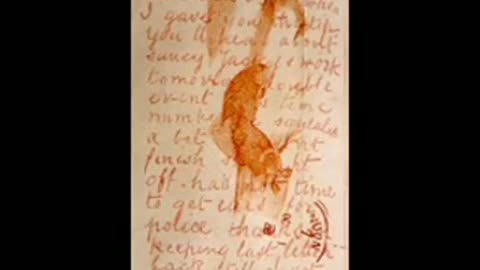 I gave you the tip
you about
saucy Jacky s work
tomorrow double
event time
number squealed
a bit
finish
off. had not time
to get ears for
police thanks for
keeping last letter
back till